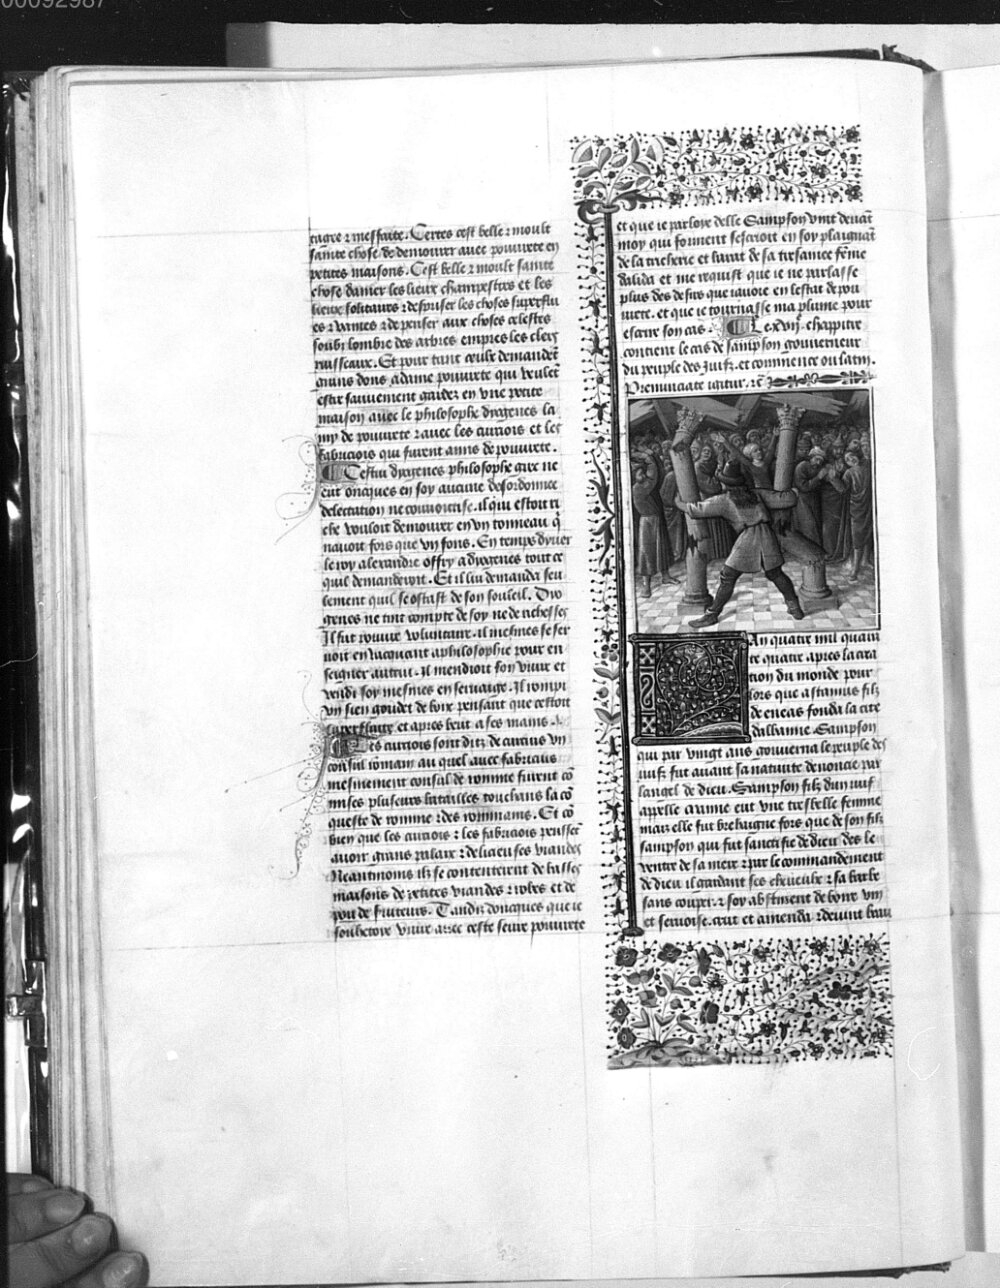 00092987
et messaite. Certes cest belle ⁊ moult
sainte chose de demourer auec pourete en
petites maisons. Cest belle ⁊ moult sainte
chose damer les lieux champestres et les
lieux solitaires ⁊ despriser les choses superflu
es ⁊ vaines ⁊ de penser aux choses celestes
soubz lombre des arbres empres les clers
ruisseaux. Et pour tant ceulx demandẽt
grans dons a dame pourete qui veulẽt
estre sauuement gardez en vne petite
maison auec le philosophe dyogenes la
my de pourete ⁊ auec les curiois et les
fabricios qui furent amis de pourete.
Cestui dyogenes philosophe grec ne
eut oncques en soy aucune desordonnee
delectation ne couuoitise. il qui estoit ri
che vouloit demourer en vn tonneau q̃
nauoit fors que vng fons. En temps dyuer
le roy alexandre offry a dyogenes tout ce
quil demanderoit. Et il lui demanda seu
lement quil se ostast de son souleil. Dyo
genes ne tint compte de soy ne de richesses
Il fut poure voluntaire. il mesmes se ser
uoit en vacquant a philosophie pour en
seigner autrui. il mendioit son viure et
vendi soy mesmes en seruaige. Il rompi
vn sien goudet de boix pensant que cestoit
superfluite et apres beut a ses mains.
Les curiois sont ditz de curius vn
consul romain au quel auec fabricius
mesmement consul de romme furent cõ
mises pluseurs batailles touchans la cõ
queste de romme ⁊ des rommains. Et cõ
bien que les curiois ⁊ les fabriciois peussẽt
auoir grans palaix ⁊ delicieuses viandes
Neantmoins ilz se contenterent de basses
maisons de petites viandes ⁊ robes et de
pou de seruiteurs. Tandiz doncques que ie
souhetoie viure auec ceste seure pourete
et que ie parloye delle Sampson vint deuãt
moy qui forment sescrioit en soy plaignãt
de la tricherie et barat de sa tresamee fẽme
dalida et me requist que ie ne parlasse
plus des desirs que iauoie en lestat de pou
urete. et que ie tournasse ma plume pour
escrire son cas. Le xvijᵉ chappitre
contient le cas de sampson gouuerneur
du peuple des Juifz. et commence ou latin.
Prenunciate igitur. ⁊c̃
An quatre mil quatre
apres la crea
tion du monde pour
lors que ascanius filz
de eneas fonda la cite
dalbanie. Sampson
qui par vingt ans gouuerna le peuple des
iuifz fut auant sa natiuite denoncie par
langel de dieu. Sampson filz dun iuif
apelle eut vne tresbelle femme
mais elle fut brehaigne fors que de son filz
sampson qui fut sanctifie de dieu des le
ventre de sa mere ⁊ par le commandement
de dieu il gardant ses cheueulx ⁊ sa barbe
sans couper. ⁊ soy abstinent de boire vin
et seruoise. crut et amenda ⁊ deuint beau